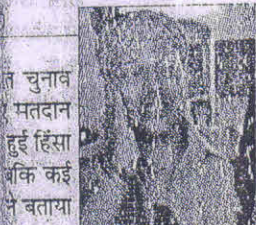 चुनाव
मतदान
हुई हिंसा
कि कई
ने बताया